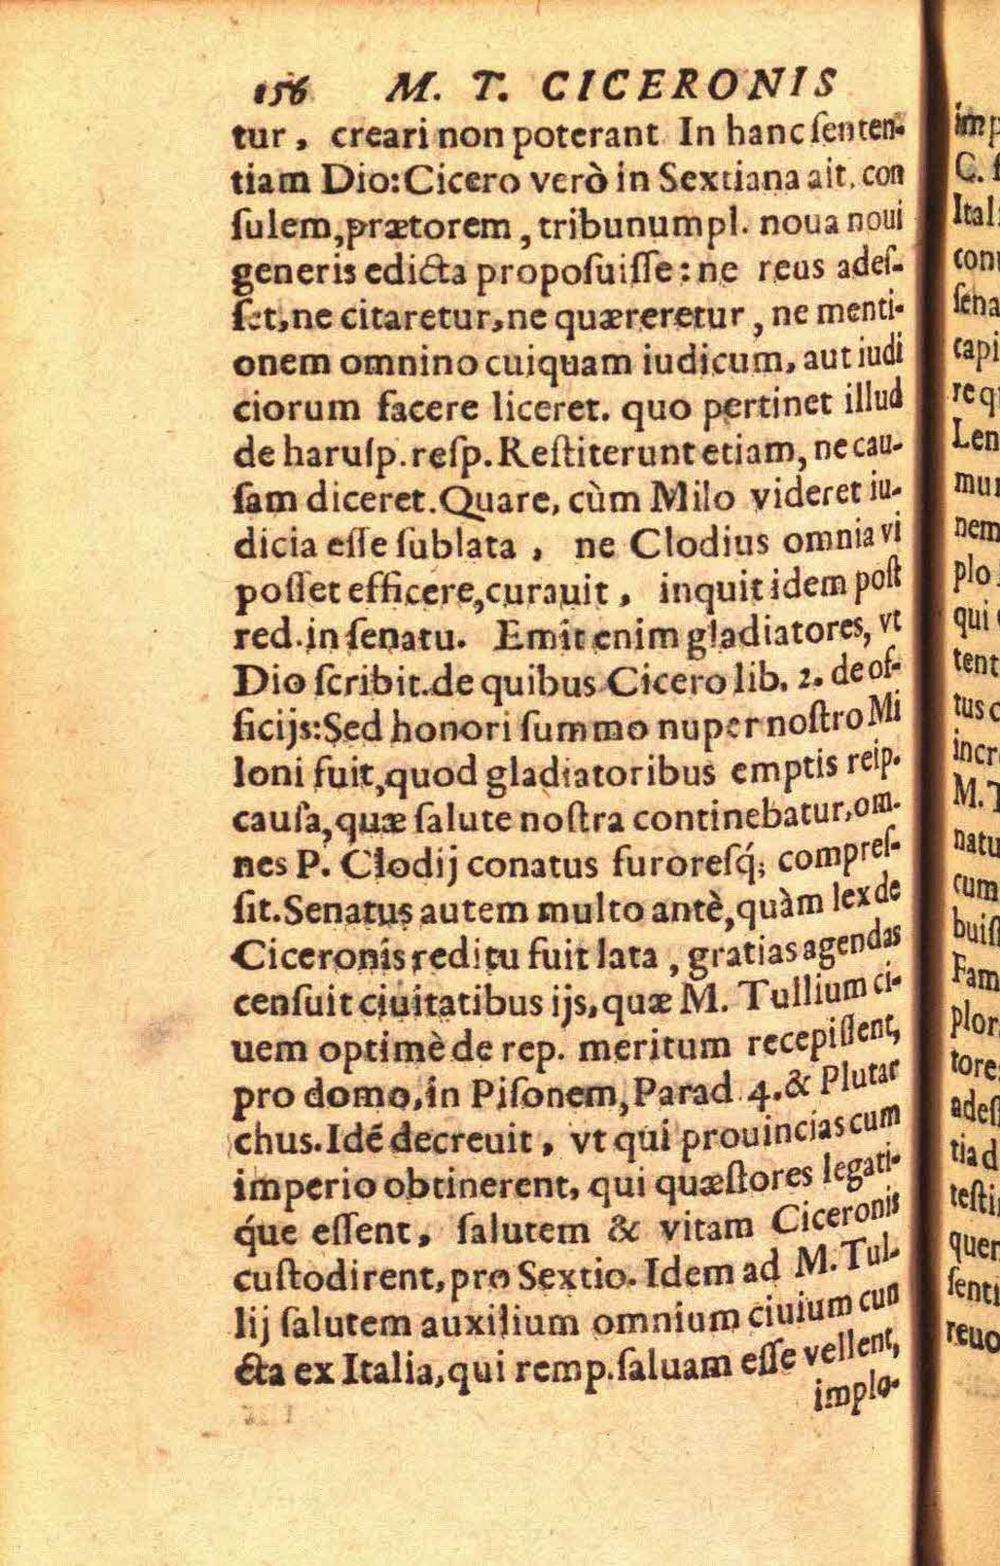 156 M. T. CICERONIS
tur, creari non poterant In hanc ſenten-
tiam Dio: Cicero verò in Sextiana ait, con
ſulem, prætorem, tribunum pl. noua noui
generis edicta propoſuiſſe: ne reus adeſ-
ſet, ne citaretur, ne quæreretur, ne menti-
onem omnino cuiquam iudicum, aut iudi
ciorum facere liceret. quo pertinet illud
de haruſp. reſp. Reſtiterunt etiam, ne cau-
ſam diceret. Quare, cùm Milo videret iu-
dicia eſſe ſublata, ne Clodius omnia vi
poſſet efficere, curauit, inquit idem poſt
red. in ſenatu. Emit enim gladiatores, vt
Dio ſcribit. de quibus Cicero lib. 2. de of-
ficijs: Sed honori ſummo nuper noſtro Mi
loni fuit, quod gladiatoribus emptis reip.
cauſa, quæ ſalute noſtra continebatur, om-
nes P. Clodij conatus furoreſq́; compreſ-
ſit. Senatus autem multo antè, quàm lex de
Ciceronis reditu fuit lata, gratias agendas
cenſuit ciuitatibus ijs, quæ M. Tullium ci-
uem optimè de rep. meritum recepiſſent,
pro domo, in Piſonem, Parad 4. & Plutar
chus. Idé decreuit, vt qui prouincias cum
imperio obtinerent, qui quæſtores legati-
q́ue eſſent, ſalutem & vitam Ciceronis
cuſtodirent, pro Sextio. Idem ad M. Tul-
lij ſalutem auxilium omnium ciuium cun
cta ex Italia, qui remp. ſaluam eſſe vellent,
implo-
imp
C. f
Ital
con
ſena
capi
req
Len
mu
nem
plo
qui
tent
tus c
incr
M. T
natu
cum
buiſ
Fam
plor
tore
adeſ
tiad
teſti
quer
ſenti
reuo